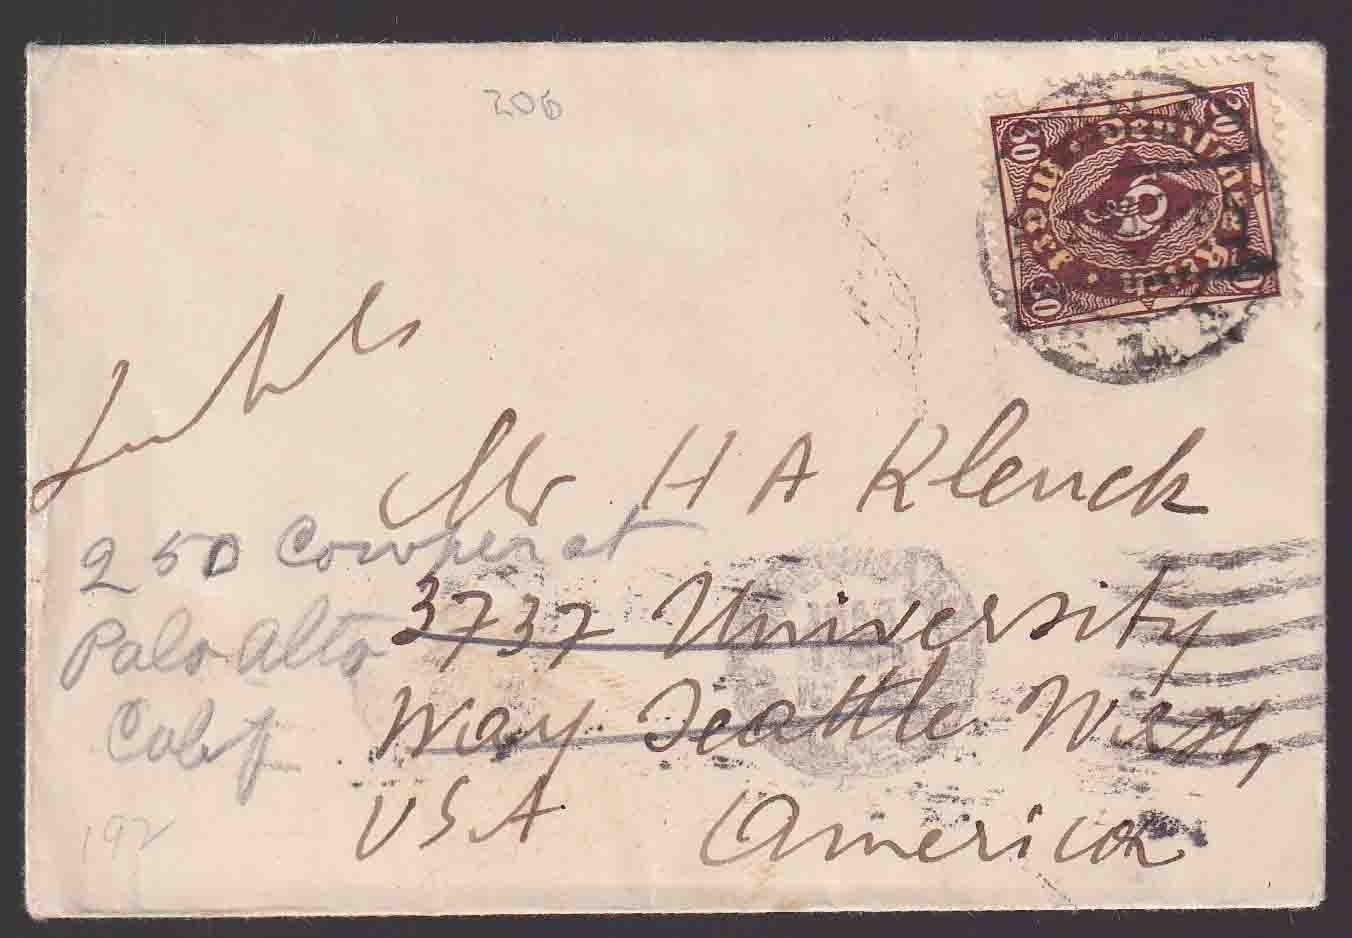 206
30
30
30
Deutsches Reich
Mark
Mr H A Klenck
250 Cowper st
3737 University
Palo Alto
Way Seattle Wash,
Calif
USA America
192